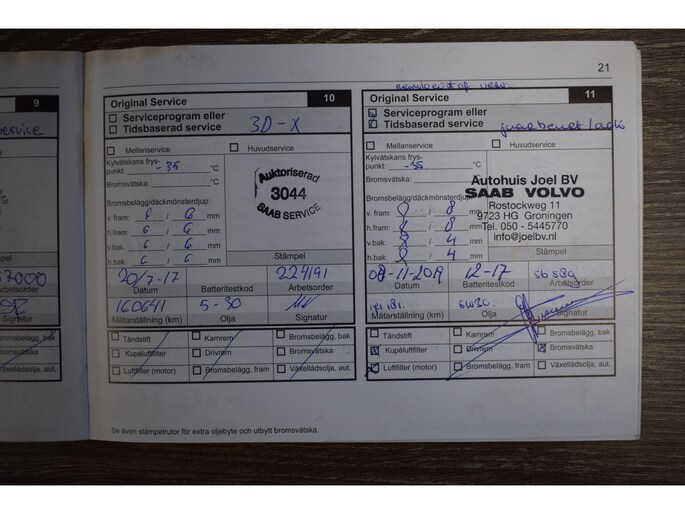 21
9
service
7000
Arbetsorder
Signatur
omsbelägg, bak
Bromsvätska
Växellådsolja, aut.
Original Service 10
Serviceprogram eller
Tidsbaserad service
3D-X
Mellanservice Huvudservice
Kylvätskans frys-
punkt: -35 °C
Bromsvätska: °C
Bromsbelägg/däckmönsterdjup:
v. fram: 6 / 6 mm
h.fram: 6 / 6 mm
v.bak: 6 / 6 mm
h.bak: 6 / 6 mm
Auktoriserad
3044
SAAB SERVICE
Stämpel
20/7-17 224191
Datum Batteritestkod Arbetsorder
160641 5-30
Mätarställning (km) Olja Signatur
Tändstift Kamrem Bromsbelägg, bak
Kupéluftfilter Drivrem Bromsvätska
Luftfilter (motor) Bromsbelägg, fram Växellådsolja, aut.
Original Service 11
Serviceprogram eller
Tidsbaserad service
Mellanservice Huvudservice
Kylvätskans frys-
punkt: -35 °C
Bromsvätska:
Bromsbelägg/däckmönsterdjup:
v. fram: 8 / 8 mm
h.fram: 8 / 8 mm
v.bak: 8 / 4 mm
h.bak: 8 / 4 mm
Autohuis Joel BV
SAAB VOLVO
Rostockweg 11
9723 HG Groningen
Tel. 050 - 5445770
info@joelbv.nl
Stämpel
08-11-2019 12-17 56589
Datum Batteritestkod Arbetsorder
5W30
Mätarställning (km) Olja Signatur
Tändstift Kamrem Bromsbelägg, bak
Kupéluftfilter Drivrem Bromsvätska
Luftfilter (motor) Bromsbelägg, fram Växellådsolja, aut.
Se även stämpelrutor för extra oljebyte och utbytt bromsvätska.